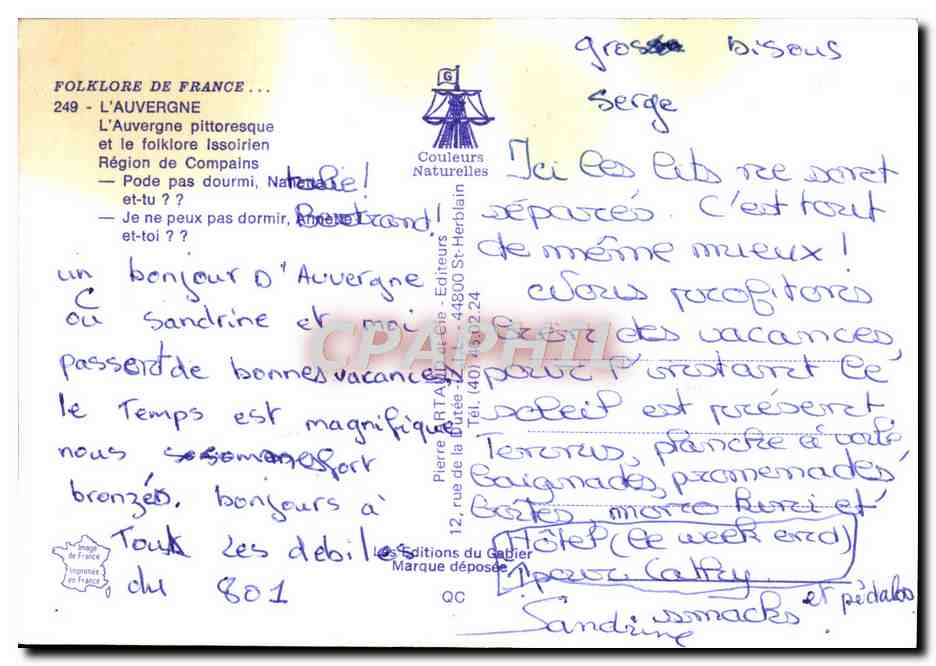 FOLKLORE DE FRANCE...
249 - L'AUVERGNE
L'Auvergne pittoresque
et le folklore Issoirien
Région de Compains
— Pode pas dourmi, Nathalie!
et-tu ??
— Je ne peux pas dormir, Bertrand!
et-toi ??
un bonjour D'Auvergne
où Sandrine et moi
passent de bonnes vacances,
le Temps est magnifique
nous fort
bronzés. bonjours à
Tous Les débiles
du 801
Image
de France
Imprimée
en France
G
Couleurs
Naturelles
Pierre ARTAUD et Cie - Editeurs
12, rue de la Dutée - 44800 St-Herblain
Tél. (40) 46.02.24
CPAPHIL
Les Editions du Gabier
Marque déposée
QC
gros bisous
Serge
Ici les lits ne sont
séparés. C'est tout
de même mieux!
Nous profitons
bien des vacances,
pour l'instant le
soleil est présent
Tennis, planche à voile
baignades, promenades,
boîtes,
Hôtel (le week end)
↑ pour Cathy
et pédalos
smacks
Sandrine